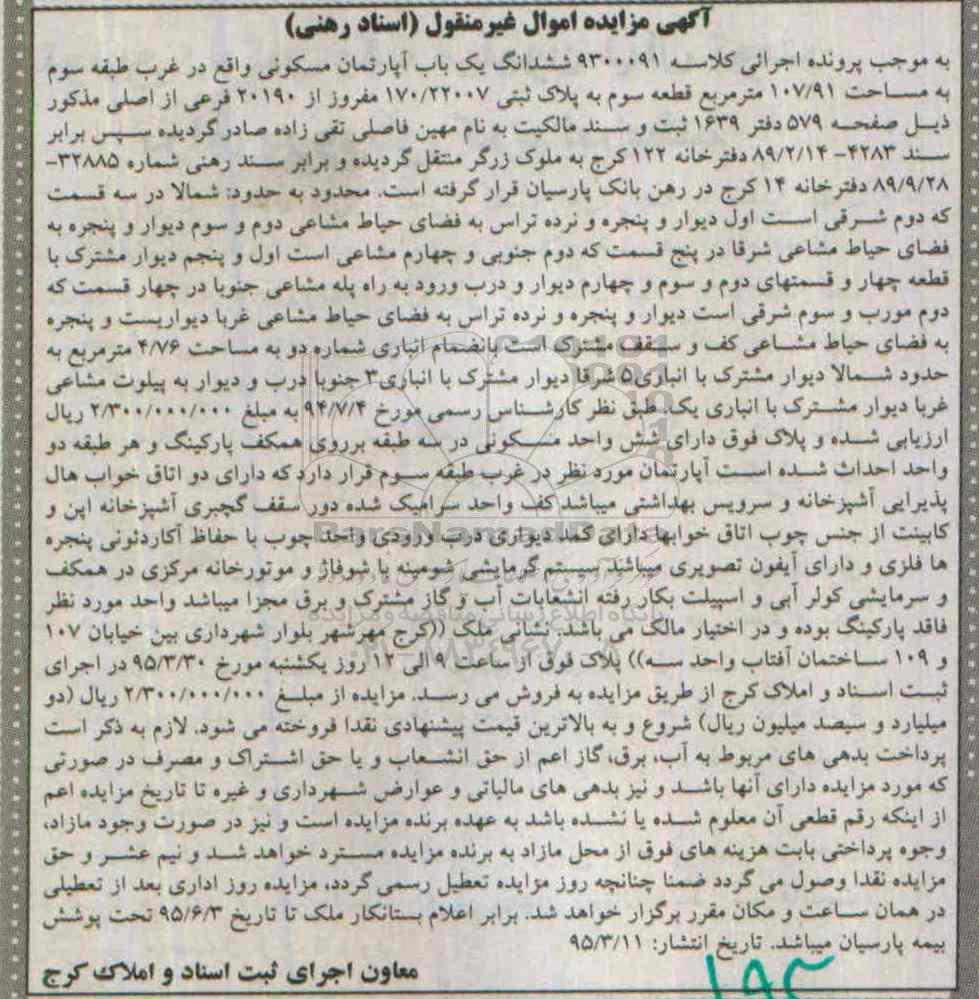 آگهی مزایده اموال غیرمنقول (اسناد رهنی)
به موجب پرونده اجرائی کلاسه ۹۳۰۰۰۹۱ ششدانگ یک باب آپارتمان مسکونی واقع در غرب طبقه سوم
به مساحت ۱۰۷/۹۱ مترمربع قطعه سوم به پلاک ثبتی ۱۷۰/۲۲۰۰۷ مفروز از ۲۰۱۹۰ فرعی از اصلی مذکور
ذیل صفحه ۵۷۹ دفتر ۱۶۳۹ ثبت و سند مالکیت به نام مهین فاضلی تقی زاده صادر گردیده سپس برابر
سند ۴۲۸۳- ۸۹/۲/۱۴ دفترخانه ۱۲۲ کرج به ملوک زرگر منتقل گردیده و برابر سند رهنی شماره ۳۲۸۸۵-
۸۹/۹/۲۸ دفترخانه ۱۴ کرج در رهن بانک پارسیان قرار گرفته است. محدود به حدود: شمالا در سه قسمت
که دوم شرقی است اول دیوار و پنجره و نرده تراس به فضای حیاط مشاعی دوم و سوم دیوار و پنجره به
فضای حیاط مشاعی شرقا در پنج قسمت که دوم جنوبی و چهارم مشاعی است اول و پنجم دیوار مشترک با
قطعه چهار و قسمتهای دوم و سوم و چهارم دیوار و درب ورود به راه پله مشاعی جنوبا در چهار قسمت که
دوم مورب و سوم شرقی است دیوار و پنجره و نرده تراس به فضای حیاط مشاعی غربا دیواریست و پنجره
به فضای حیاط مشاعی کف و سقف مشترک است بانضمام انباری شماره دو به مساحت ۴/۷۶ مترمربع به
حدود شمالا دیوار مشترک با انباری۵ شرقا دیوار مشترک با انباری۳ جنوبا درب و دیوار به پیلوت مشاعی
غربا دیوار مشترک با انباری یک. طبق نظر کارشناس رسمی مورخ ۹۴/۷/۴ به مبلغ ۲/۳۰۰/۰۰۰/۰۰۰ ریال
ارزیابی شده و پلاک فوق دارای شش واحد مسکونی در سه طبقه برروی همکف پارکینگ و هر طبقه دو
واحد احداث شده است آپارتمان مورد نظر در غرب طبقه سوم قرار دارد که دارای دو اتاق خواب هال
پذیرایی آشپزخانه و سرویس بهداشتی میباشد کف واحد سرامیک شده دور سقف گچبری آشپزخانه اپن و
کابینت از جنس چوب اتاق خوابها دارای کمد دیواری درب ورودی واحد چوب با حفاظ آکاردئونی پنجره
ها فلزی و دارای آیفون تصویری میباشد سیستم گرمایشی شومینه با شوفاژ و موتورخانه مرکزی در همکف
و سرمایشی کولر آبی و اسپیلت بکار رفته انشعابات آب و گاز مشترک و برق مجزا میباشد واحد مورد نظر
فاقد پارکینگ بوده و در اختیار مالک می باشد. نشانی ملک ((کرج مهرشهر بلوار شهرداری بین خیابان ۱۰۷
و ۱۰۹ ساختمان آفتاب واحد سه)) پلاک فوق از ساعت ۹ الی ۱۲ روز یکشنبه مورخ ۹۵/۳/۳۰ در اجرای
ثبت اسناد و املاک کرج از طریق مزایده به فروش می رسد. مزایده از مبلغ ۲/۳۰۰/۰۰۰/۰۰۰ ریال (دو
میلیارد و سیصد میلیون ریال) شروع و به بالاترین قیمت پیشنهادی نقدا فروخته می شود. لازم به ذکر است
پرداخت بدهی های مربوط به آب، برق، گاز اعم از حق انشعاب و یا حق اشتراک و مصرف در صورتی
که مورد مزایده دارای آنها باشد و نیز بدهی های مالیاتی و عوارض شهرداری و غیره تا تاریخ مزایده اعم
از اینکه رقم قطعی آن معلوم شده یا نشده باشد به عهده برنده مزایده است و نیز در صورت وجود مازاد،
وجوه پرداختی بابت هزینه های فوق از محل مازاد به برنده مزایده مسترد خواهد شد و نیم عشر و حق
مزایده نقدا وصول می گردد ضمنا چنانچه روز مزایده تعطیل رسمی گردد، مزایده روز اداری بعد از تعطیلی
در همان ساعت و مکان مقرر برگزار خواهد شد. برابر اعلام بستانکار ملک تا تاریخ ۹۵/۶/۳ تحت پوشش
بیمه پارسیان میباشد. تاریخ انتشار: ۹۵/۳/۱۱
معاون اجرای ثبت اسناد و املاک کرج
ParsNamadData